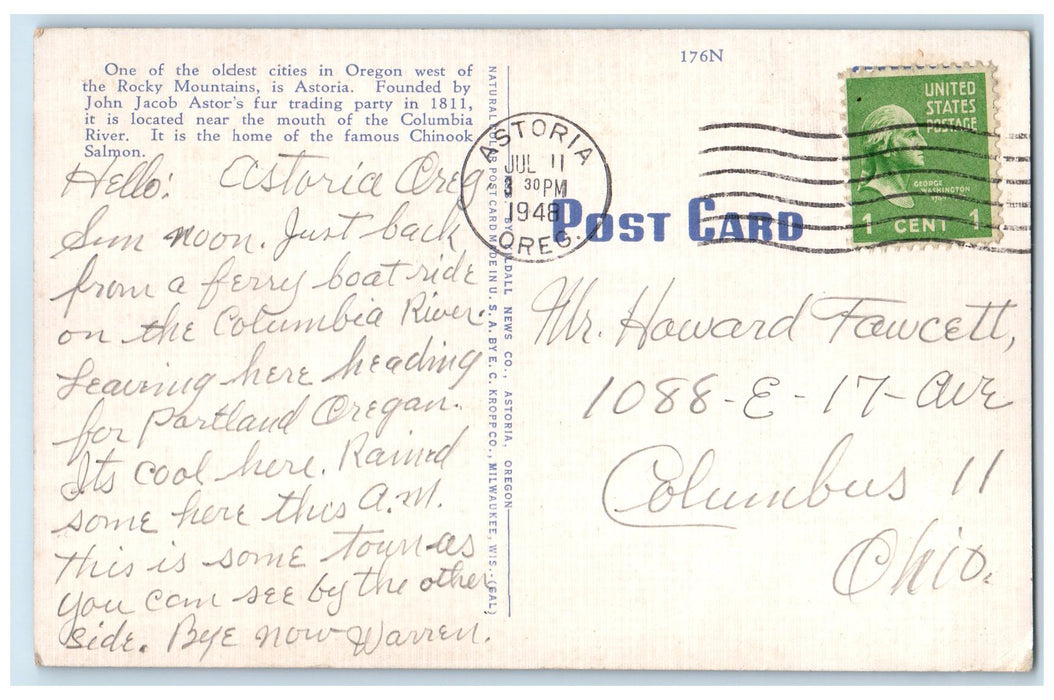 176N
One of the oldest cities in Oregon west of
the Rocky Mountains, is Astoria. Founded by
John Jacob Astor's fur trading party in 1811,
it is located near the mouth of the Columbia
River. It is the home of the famous Chinook
Salmon.
Hello: Astoria Oreg
Sun noon. Just back
from a ferry boat ride
on the Columbia River.
Leaving here heading
for Portland Oregan.
Its cool here. Rained
some here this A.M.
This is some town as
you can see by the other
side. Bye now Warren.
NATURAL COLOR POST CARD MADE IN U. S. A. BY E. C. KROPP CO., MILWAUKEE, WIS.-(GAL)
BY DALL NEWS CO., ASTORIA, OREGON
ASTORIA
JUL 11
3 30 PM
1948
OREG.
POST CARD
UNITED
STATES
POSTAGE
GEORGE
WASHINGTON
1 CENT 1
Mr. Howard Fawcett,
1088-E-17-Ave
Columbus 11
Ohio.